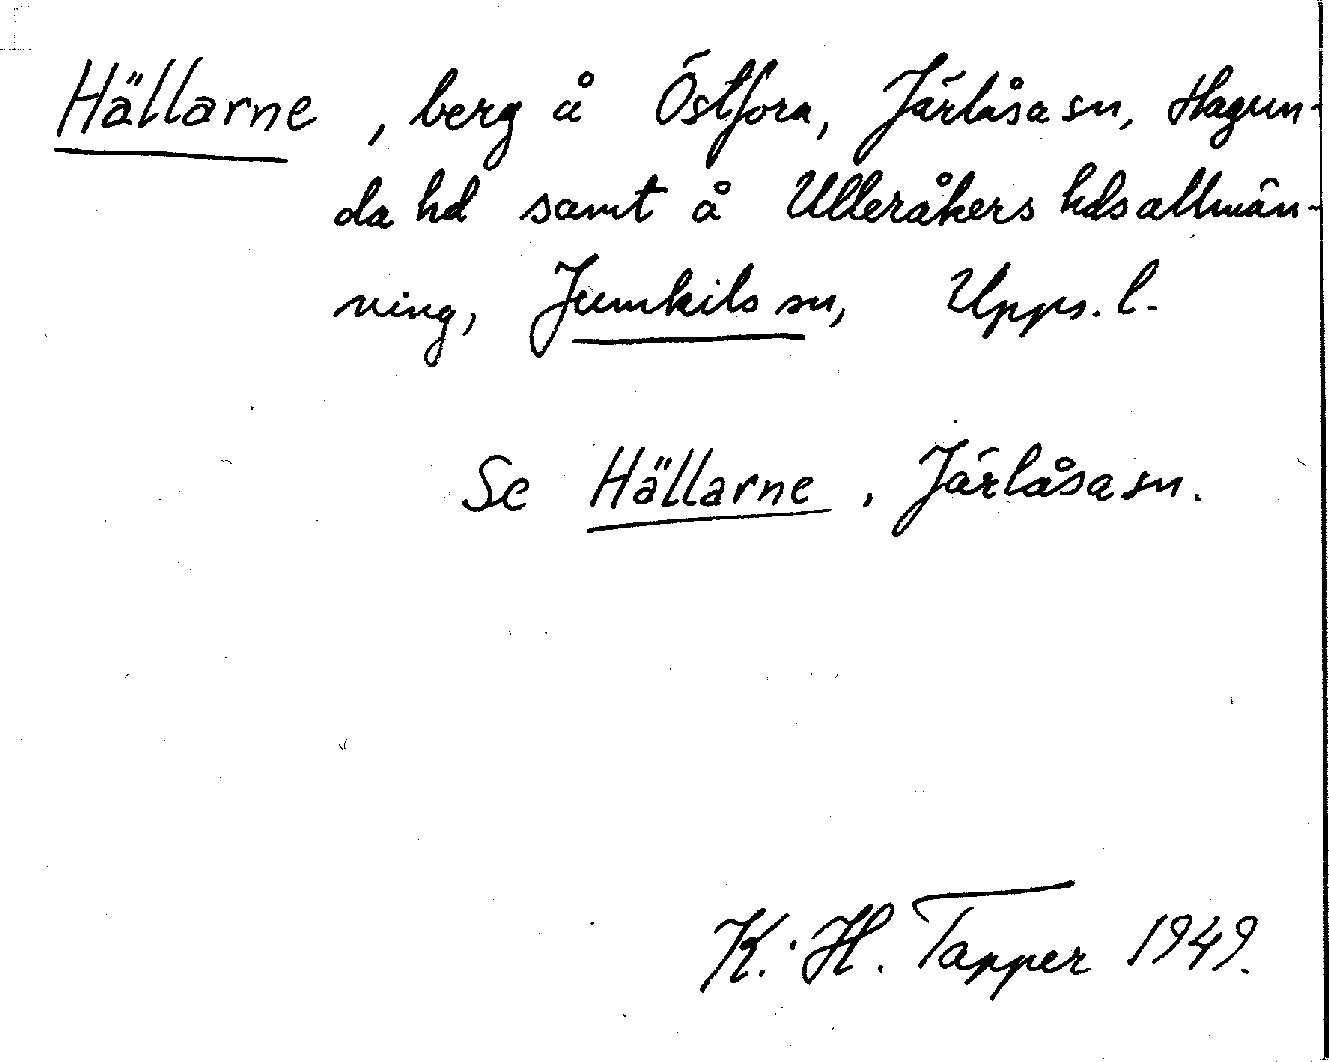 Hällarne, berg å Östfora, Järlåsa sn, Hagun-
da hd samt å Ulleråkers hdsallmän-
ning, Jumkils sn, Upps. l.
Se Hällarne, Järlåsa sn.
K. H. Tapper 1949.